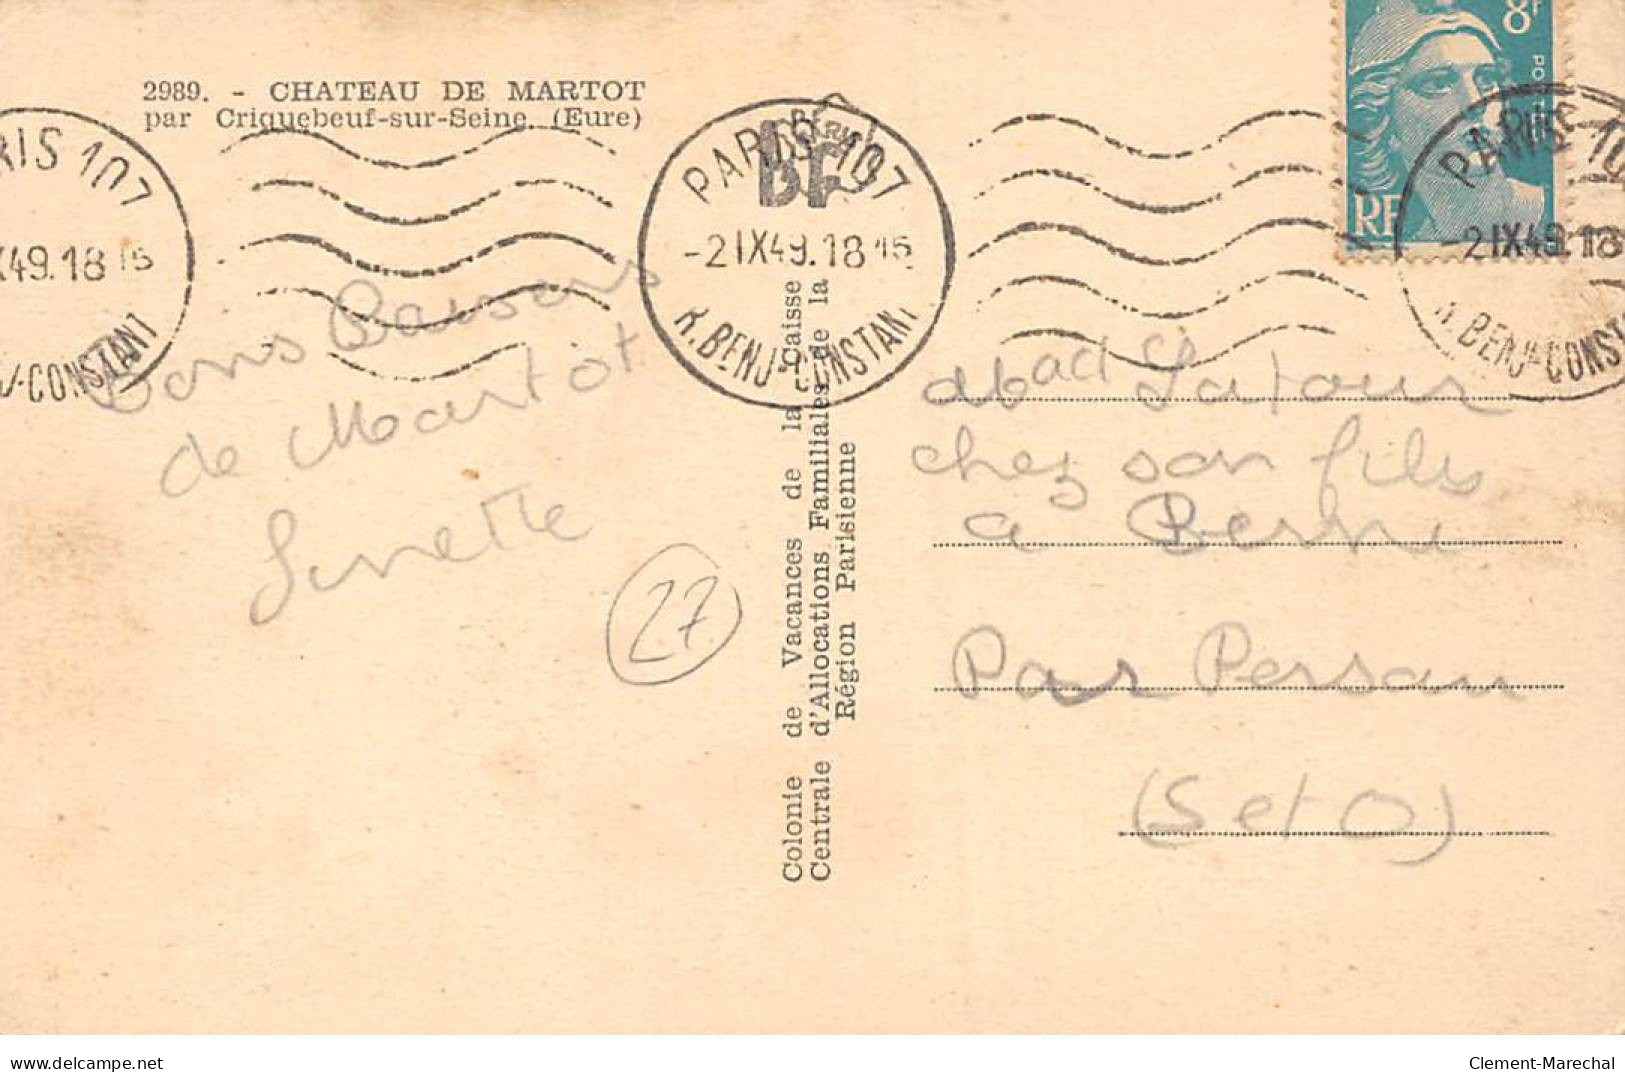 2989. - CHATEAU DE MARTOT
par Criquebeuf-sur-Seine (Eure)
8F
RF
RIS 107
X49.18 15
J-CONSTANT
PARIS 107
-2 IX49.18 15
R. BENJ-CONSTANT
PARIS 10
-2 IX49.18
R. BENJ-CONST
Bons Baisers
de Martot
Ginette
27
Colonie de Vacances de la Caisse
Centrale d'Allocations Familiales de la
Région Parisienne
chez son fils
a Berne
Par Persan
(S et O)
delcampe.net
Clement-Marechal